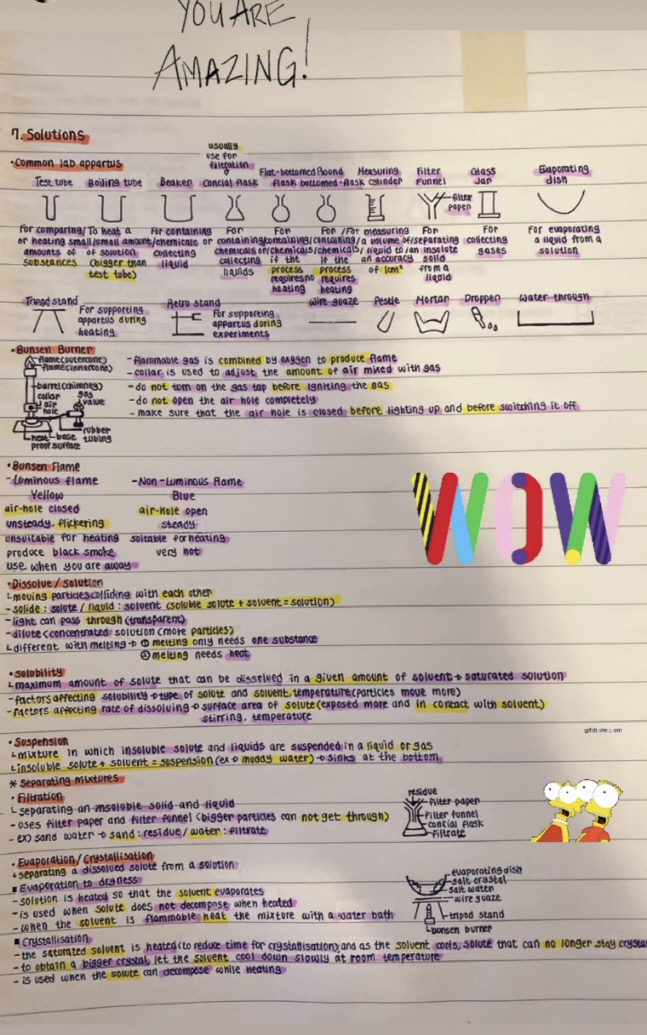 YOU ARE
AMAZING!
7. Solutions
usually
use for
filtration
• Common lab appartus
Test tube Boiling tube Beaker Concial flask Flat-bottomed flask Round bottomed-flask Measuring cylinder Filter Funnel Glass Jar Evaporating dish
filter paper
For comparing or heating small amounts of substances
To heat a small amount of solution (bigger than test tube)
For containing chemicals or collecting liquid
For containing chemicals or collecting liquids
For containing chemicals if the process requires no heating
For containing chemicals if the process requires heating
For measuring a volume of liquid to an accuracy of 1cm³
For separating insolute solid from a liquid
For collecting gases
For evaporating a liquid from a solution
Tripod stand
For supporting
appartus during
heating
Retro stand
For supporting
appartus during
experiments
Wire guaze Pestle Mortar Dropper Water through
• Bunsen Burner
flame(outercone)
flame(innercone)
barrel(chimney)
collar
air
hole
gas
valve
rubber
tubing
heat
proof surface
base
- flammable gas is combined by oxygen to produce flame
- collar is used to adjust the amount of air mixed with gas
- do not turn on the gas tap before igniting the gas
- do not open the air hole completely
- make sure that the air hole is closed before lighting up and before switching it off
• Bunsen Flame
- Luminous flame - Non-Luminous flame
Yellow Blue
air-hole closed air-hole open
unsteady, flickering steady
unsuitable for heating suitable for heating
produce black smoke very hot
use when you are away
WOW
• Dissolve / Solution
moving particles colliding with each other
- solide : solute / liquid : solvent (soluble solute + solvent = solution)
- light can pass through (transparent)
- dilute < concentrated solution (more particles)
different with melting → ① melting only needs one substance
② melting needs heat
• Solubility
maximum amount of solute that can be dissolved in a given amount of solvent → saturated solution
- factors affecting solubility → type of solute and solvent, temperature (particles move more)
- factors affecting rate of dissolving → surface area of solute (exposed more and in contact with solvent)
stirring, temperature
gifdrole.com
• Suspension
mixture in which insoluble solute and liquids are suspended in a liquid or gas
insoluble solute + solvent = suspension (ex → muddy water) → sinks at the bottom
* Separating mixtures
• Filtration
separating an insoluble solid and liquid
- uses filter paper and filter fonnel (bigger particles can not get through)
- ex) sand water → sand : residue / water : filtrate
residue
filter paper
filter fonnel
concial flask
filtrate
• Evaporation / Crystallisation
separating a dissolved solute from a solution
▪ Evaporation to dryness
- solution is heated so that the solvent evaporates
- is used when solute does not decompose when heated
- when the solvent is flammable heat the mixture with a water bath
evaporating dish
salt crystal
salt water
wire guaze
tripod stand
bonsen burner
▪ Crystallisation
- the saturated solvent is heated (to reduce time for crystallisation) and as the solvent cools, solute that can no longer stay
- to obtain a bigger crystal, let the solvent cool down slowly at room temperature
- is used when the solute can decompose while heating